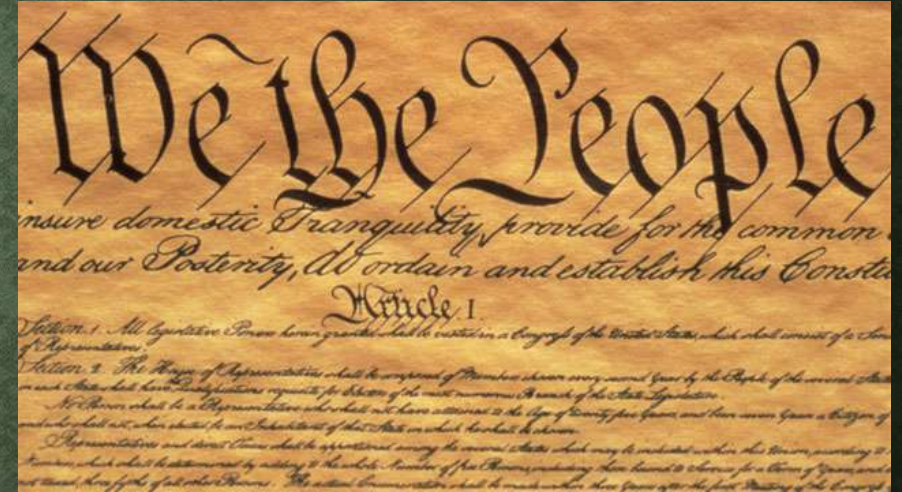 We the People
insure domestic Tranquility, provide for the common
and our Posterity, do ordain and establish this Constitu
Article. I.
Section. 1. All legislative Powers herein granted shall be vested in a Congress of the United States, which shall consist of a Sen
of Representatives.
Section. 2. The House of Representatives shall be composed of Members chosen every second Year by the People of the several States
in each State shall have Qualifications requisite for Electors of the most numerous Branch of the State Legislature.
No Person shall be a Representative who shall not have attained to the Age of twenty five Years, and been seven Years a Citizen of
and who shall not, when elected, be an Inhabitant of that State in which he shall be chosen.
Representatives and direct Taxes shall be apportioned among the several States which may be included within this Union, according to
Numbers, which shall be determined by adding to the whole Number of free Persons, including those bound to Service for a Term of Years, and
not taxed, three fifths of all other Persons. The actual Enumeration shall be made within three Years after the first Meeting of the Congress